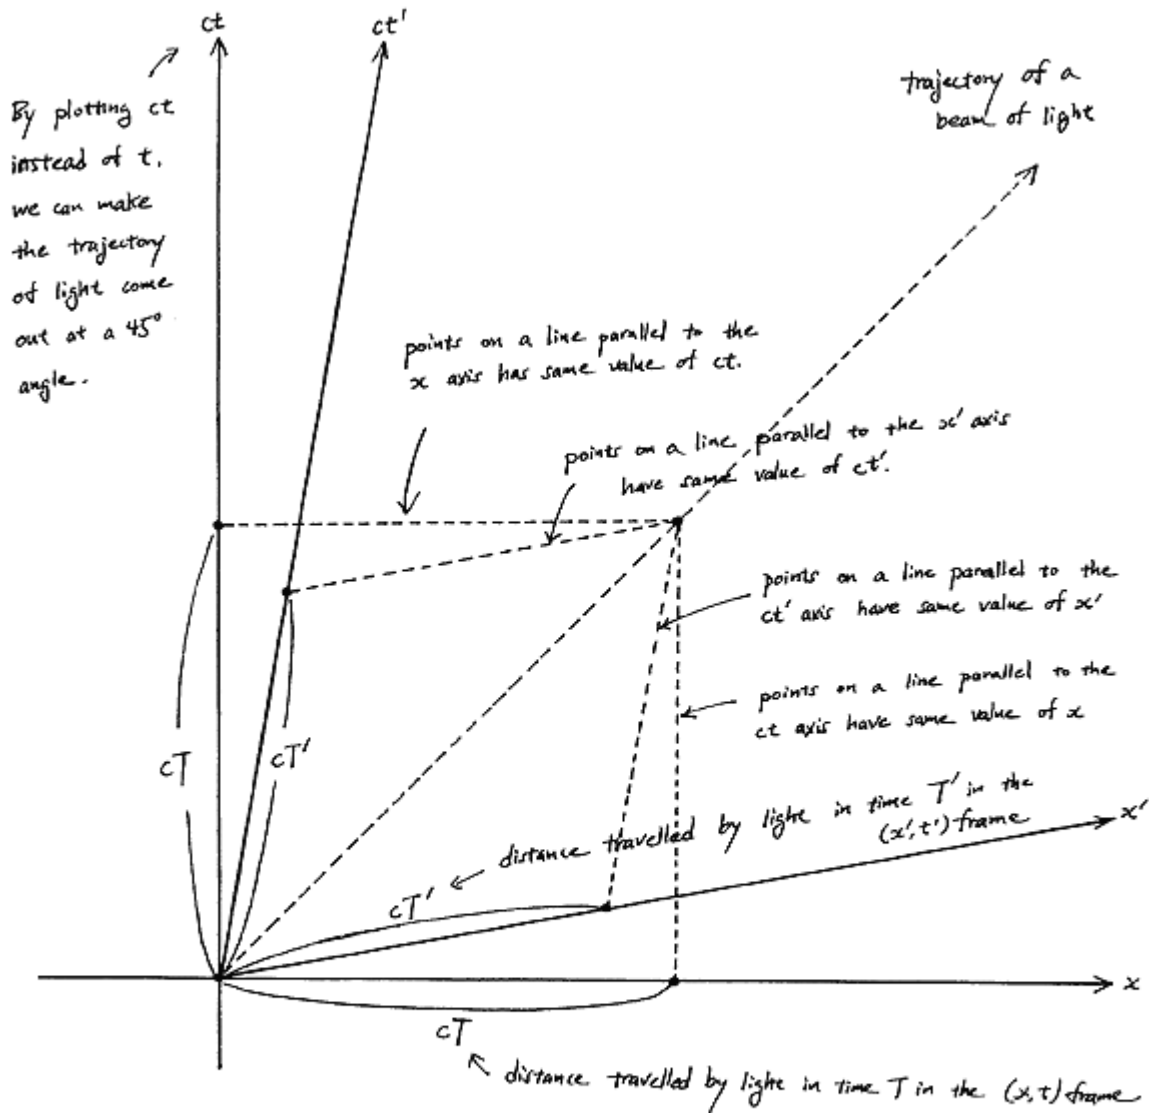 ct
ct'
trajectory of a
beam of light
By plotting ct
instead of t,
we can make
the trajectory
of light come
out at a 45°
angle.
points on a line parallel to the
x axis has same value of ct.
points on a line parallel to the x' axis
have same value of ct'.
points on a line parallel to the
ct' axis have same value of x'
points on a line parallel to the
ct axis have same value of x
cT
cT'
distance travelled by light in time T' in the
(x', t') frame
x'
cT'
x
cT
distance travelled by light in time T in the (x, t) frame